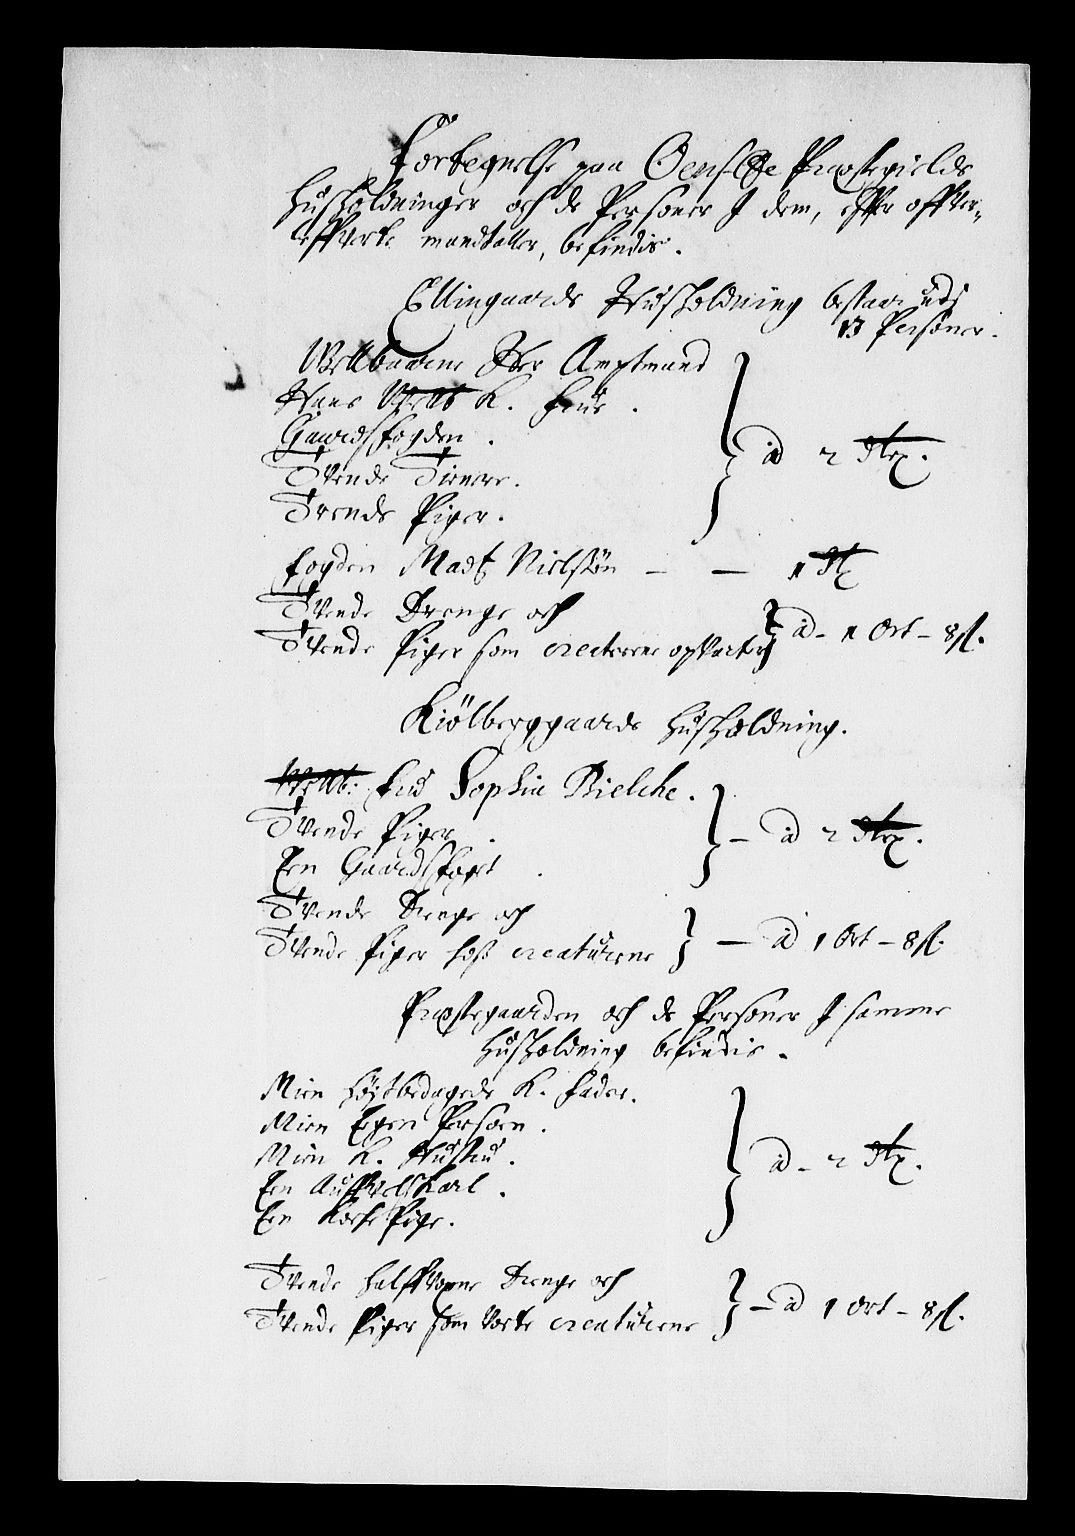 Fortegnelse paa Oensøe Præstegields
Huusholdninger och de Personer J dem, effter offver-
leffverte mandtaller, befindis.
Ellingaards Huusholdning bestaar udj
13 Personer.
Wellbaarne Her Amptmand
Hans Welb K. Frue.
Gaardsfogden.
Tvende Tienere.
Tvende Piger.
} a 2 Rdr.
Fogden Madtz Nielsøn — — 1 Rd
Tvende Drenge och
Tvende Piger som createrene opvarter
} a - 1 Ort - 8 s.
Kiølberggaards Huusholdning.
Welb: Frue Sophia Bielche.
Tvende Piger.
Een Gaardsfogt.
} — a 2 Rdr.
Tvende Drenge och
Tvende Piger hoss creaturene
} — a 1 Ort - 8 s.
Præstegaarden och de Personer J samme
Huusholdning befindis.
Mien høystbedagede K. Fader.
Mien Egen Persoen.
Mien K. Hustru.
Een Auffvelskarl.
Een Kocke Pige.
} a - 2 Rd.
Tvende halffvoxne Drenge och
Tvende Piger som vocte creaturene
} — a 1 Ort - 8 s.